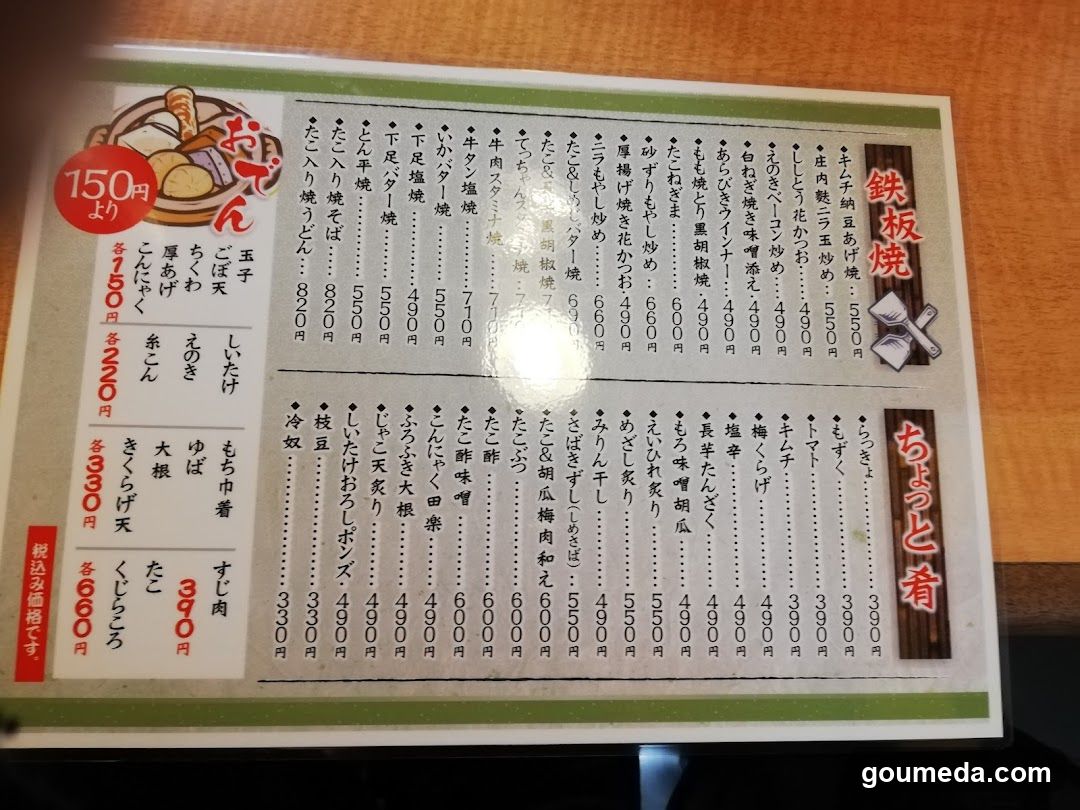 鉄板焼
◆キムチ納豆あげ焼‥550円
◆庄内麩ニラ玉炒め‥550円
◆ししとう花かつお‥490円
◆えのきベーコン炒め‥490円
◆白ねぎ焼き味噌添え‥490円
◆あらびきウインナー‥490円
◆もも焼とり黒胡椒焼‥490円
◆たこねぎま‥600円
◆砂ずりもやし炒め‥660円
◆厚揚げ焼き花かつお‥490円
◆ニラもやし炒め‥660円
◆たこ&しめじバター焼 690円
◆たこ& 黒胡椒焼
◆てっちゃんスタ 焼
◆牛肉スタミナ焼‥710円
◆牛タン塩焼‥710円
◆いかバター焼‥550円
◆下足塩焼‥490円
◆下足バター焼‥550円
◆とん平焼‥550円
◆たこ入り焼そば‥820円
◆たこ入り焼うどん‥820円
ちょっと肴
◆らっきょ‥390円
◆もずく‥390円
◆トマト‥390円
◆キムチ‥390円
◆梅くらげ‥490円
◆塩辛‥490円
◆長芋たんざく‥490円
◆もろ味噌胡瓜‥490円
◆えいひれ炙り‥550円
◆めざし炙り‥550円
◆みりん干し‥490円
◆さばきずし(しめさば)‥550円
◆たこ&胡瓜梅肉和え‥600円
◆たこぶつ‥600円
◆たこ酢‥600円
◆たこ酢味噌‥600円
◆こんにゃく田楽‥490円
◆ふろふき大根‥490円
◆じゃこ天炙り‥490円
◆しいたけおろしポンズ‥490円
◆枝豆‥330円
◆冷奴‥330円
おでん
150円より
玉子
ごぼ天
ちくわ
厚あげ
こんにゃく
各150円
しいたけ
えのき
糸こん
各220円
もち巾着
ゆば
大根
きくらげ天
各330円
すじ肉
390円
たこ
くじらころ
各660円
税込み価格です。
goumeda.com